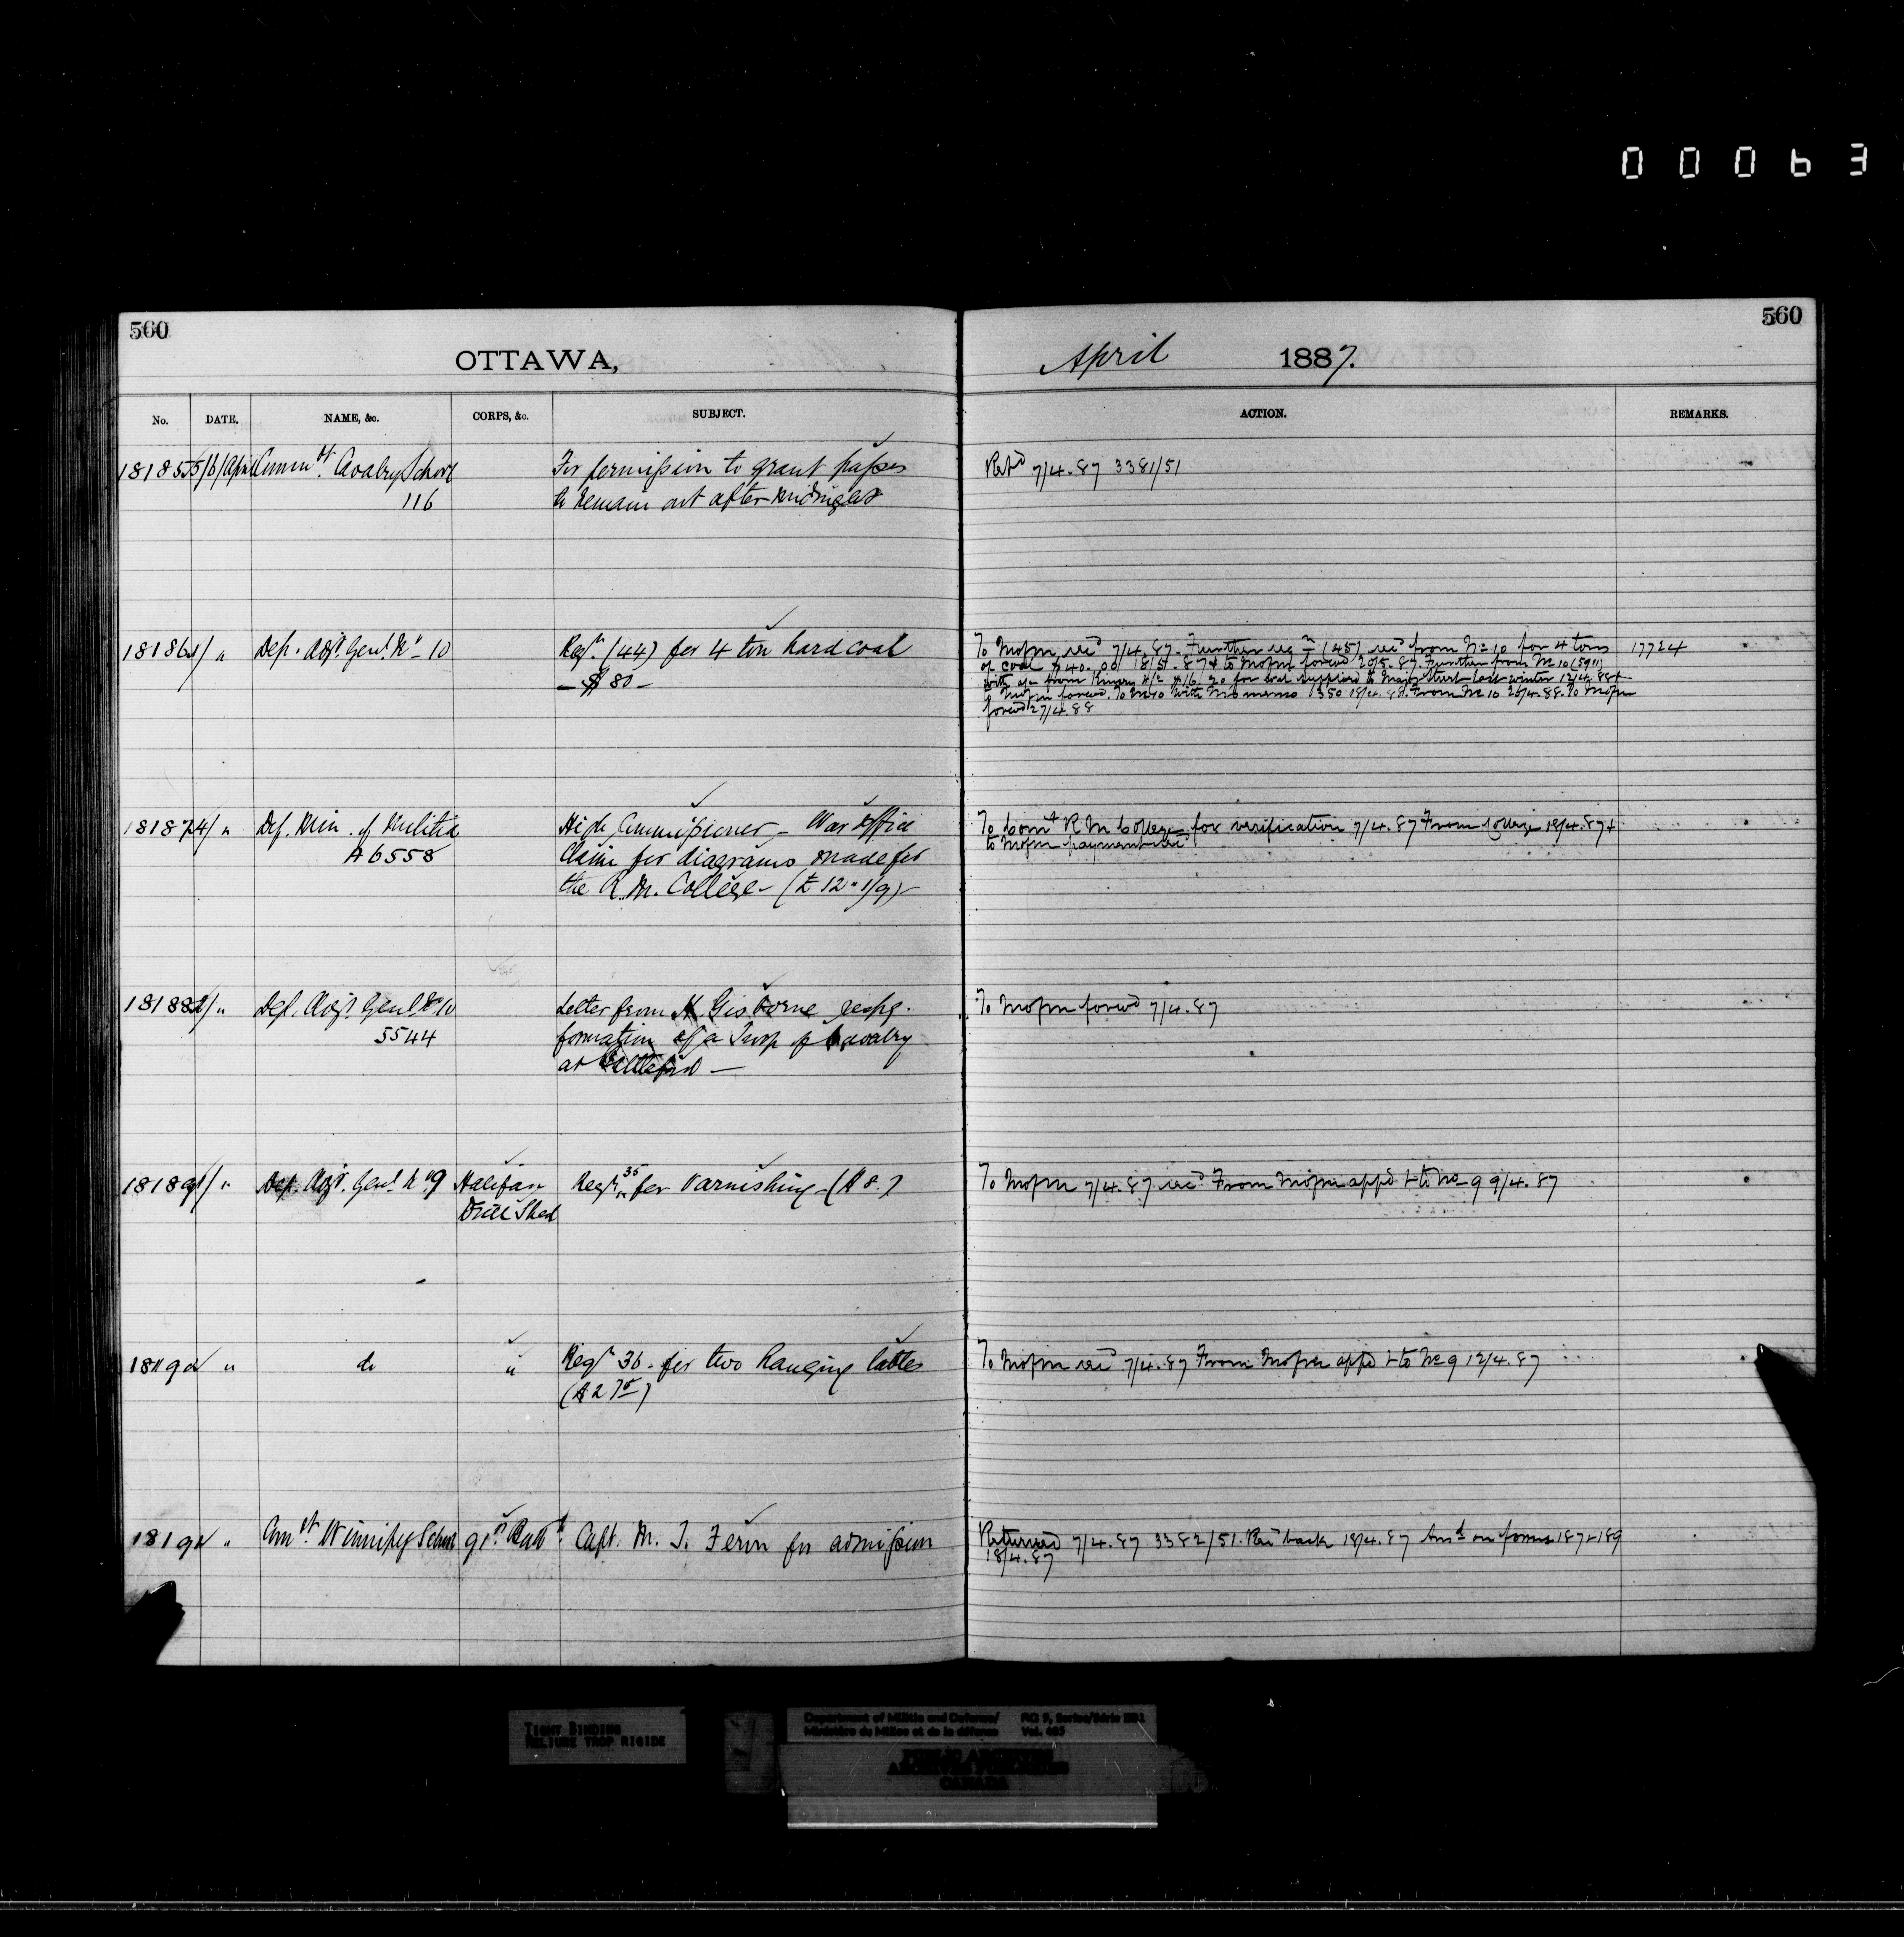 00063
560
560
OTTAWA,
April 1887.
No. DATE. NAME, &c. CORPS, &c. SUBJECT. ACTION. REMARKS.
18185 5/6/April Comm^dt. Cavalry School For permission to grant passes Ret^d 7/4.87 3381/51
116 to remain out after midnight
18186 / " Dep. Adj^t. Gen^l. N° 10 Reqn. (44) for 4 ton hard coal To Mofm 7/4.87. Further (45) from No 10 for 4 tons 17724
— $80 — of coal $40.00 18/5.87 & to Mofm forwd 20/5.87. Further from No 10 (5911)
with from Kinsey $16/20 for coal supplied to Major Street last winter 12/4.88 &
to Mofm forwd. To No 10 with Mo memo 1350 18/4.88. From No 10 26/4.88. To Mofm
forwd 27/4.88
18187 4/ " Dep. Min. of Militia High Commissioner – War Office To Com^t R M College for verification 7/4.87 From College 18/4.87 &
A6558 Claim for diagrams made for to Mofm payment
the R. M. College – (£12"1/9) –
18188 / " Dep. Adj^t. Gen^l. N° 10 Letter from H Gisborne respg. To Mofm forwd 7/4.87
5544 formation of a Troop of Cavalry
at Battleford —
18189 / " Dep. Adj^t. Gen^l. N° 9 Halifax Reqn. 35 for varnishing – ($8.) To Mofm 7/4.87 From Mofm appd & to No 9 9/4.87
Drill Shed
18190 " do " Reqn 36 – for two hanging To Mofm 7/4.87 From Mofm appd & to No 9 12/4.87
($2 75)
18191 " Com^dt. Winnipeg School 91st. Batt^n. Capt. M. J. for admission Returned 7/4.87 3382/51. Rec^d back 18/4.87 Ans^d on forms 187 & 189
18/4.87
TIGHT BINDING
RELIURE TROP RIGIDE
Department of Militia and Defence/ RG 9, Series/Série IIB1
Ministère du Milice et de la défense Vol. 465
PUBLIC ARCHIVES
ARCHIVES PUBLIQUES
CANADA